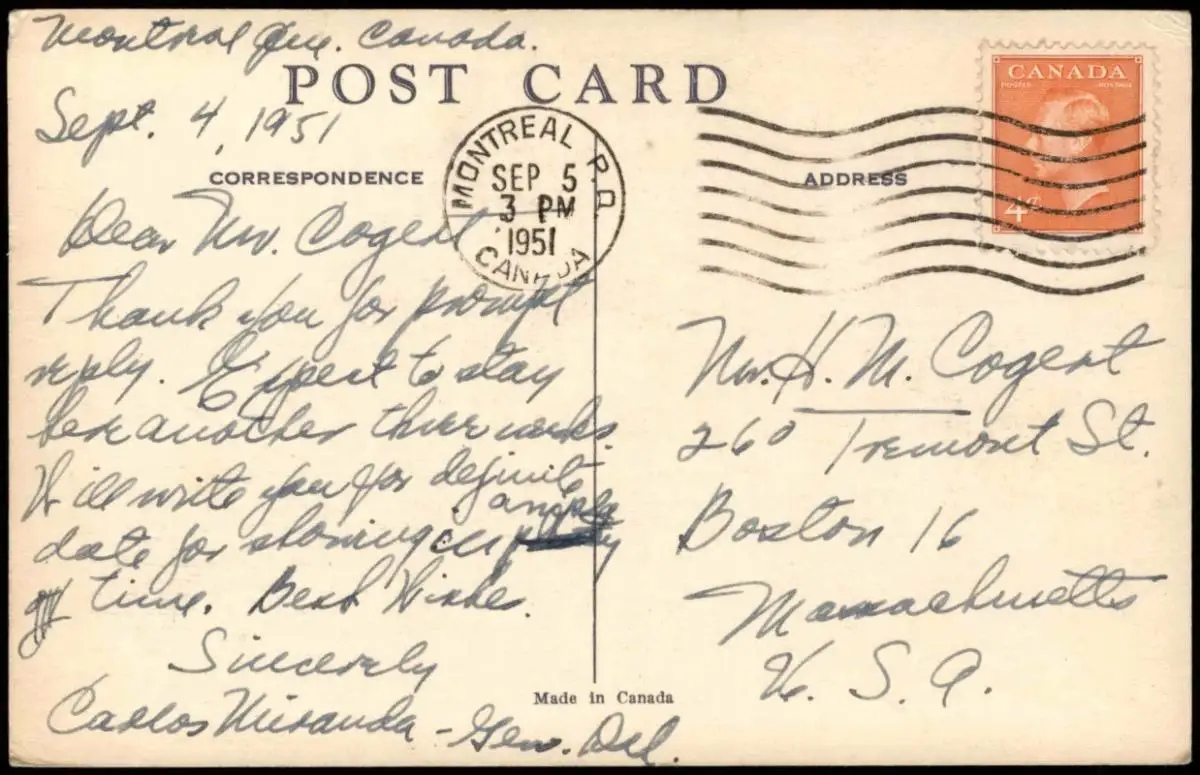 Montreal Que. Canada.
POST CARD
Sept. 4, 1951
CORRESPONDENCE
Dear Mr. Cogert
Thank you for prompt
reply. Expect to stay
here another three weeks.
Will write you for definite
date for showing in ample
time. Best Wishes.
Sincerely
Carlos Miranda - Gen. Del.
MONTREAL P.Q.
SEP 5
3 PM
1951
CANADA
ADDRESS
CANADA
POSTES POSTAGE
4¢
Mr. H. M. Cogert
260 Tremont St.
Boston 16
Massachusetts
U. S. A.
Made in Canada